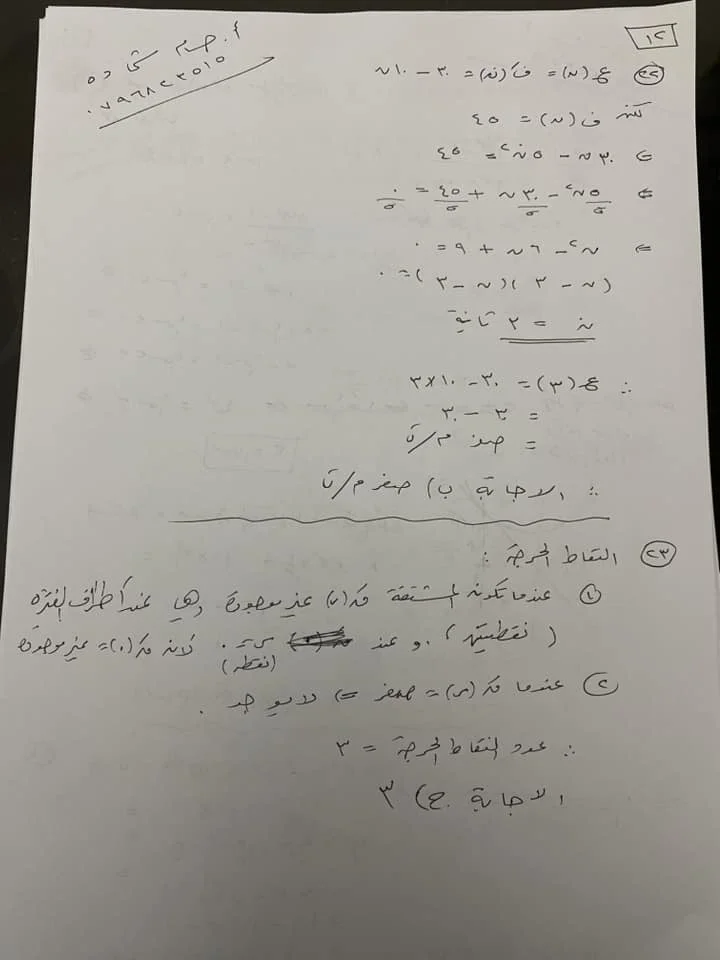 ١٢
أ. حسام شحاده
٠٧٩٦٨٢٣٥١٥
٢٢ ع(ن) = فَ(ن) = ٣٠ - ١٠ن
لكن ف(ن) = ٤٥
⇐ ٣٠ن - ٥ن٢ = ٤٥
⇐ ٥ن٢/٥ - ٣٠ن/٥ + ٤٥/٥ = ٠/٥
⇐ ن٢ - ٦ن + ٩ = ٠
(ن - ٣)(ن - ٣) = ٠
ن = ٣ ثانية
∴ ع(٣) = ٣٠ - ١٠×٣
= ٣٠ - ٣٠
= صفر م/ث
∴ الاجابة ب) صفر م/ث
٢٣ النقاط الحرجة :
١ عندما تكون المشتقة قَ(س) غير موجودة وهي عند أطراف الفترة
(نقطتين) . و عند س = ٠ لأن قَ(٠) = غير موجودة
(نقطة)
٢ عندما قَ(س) = صفر ⇐ لا يوجد .
∴ عدد النقاط الحرجة = ٣
الاجابة ج) ٣